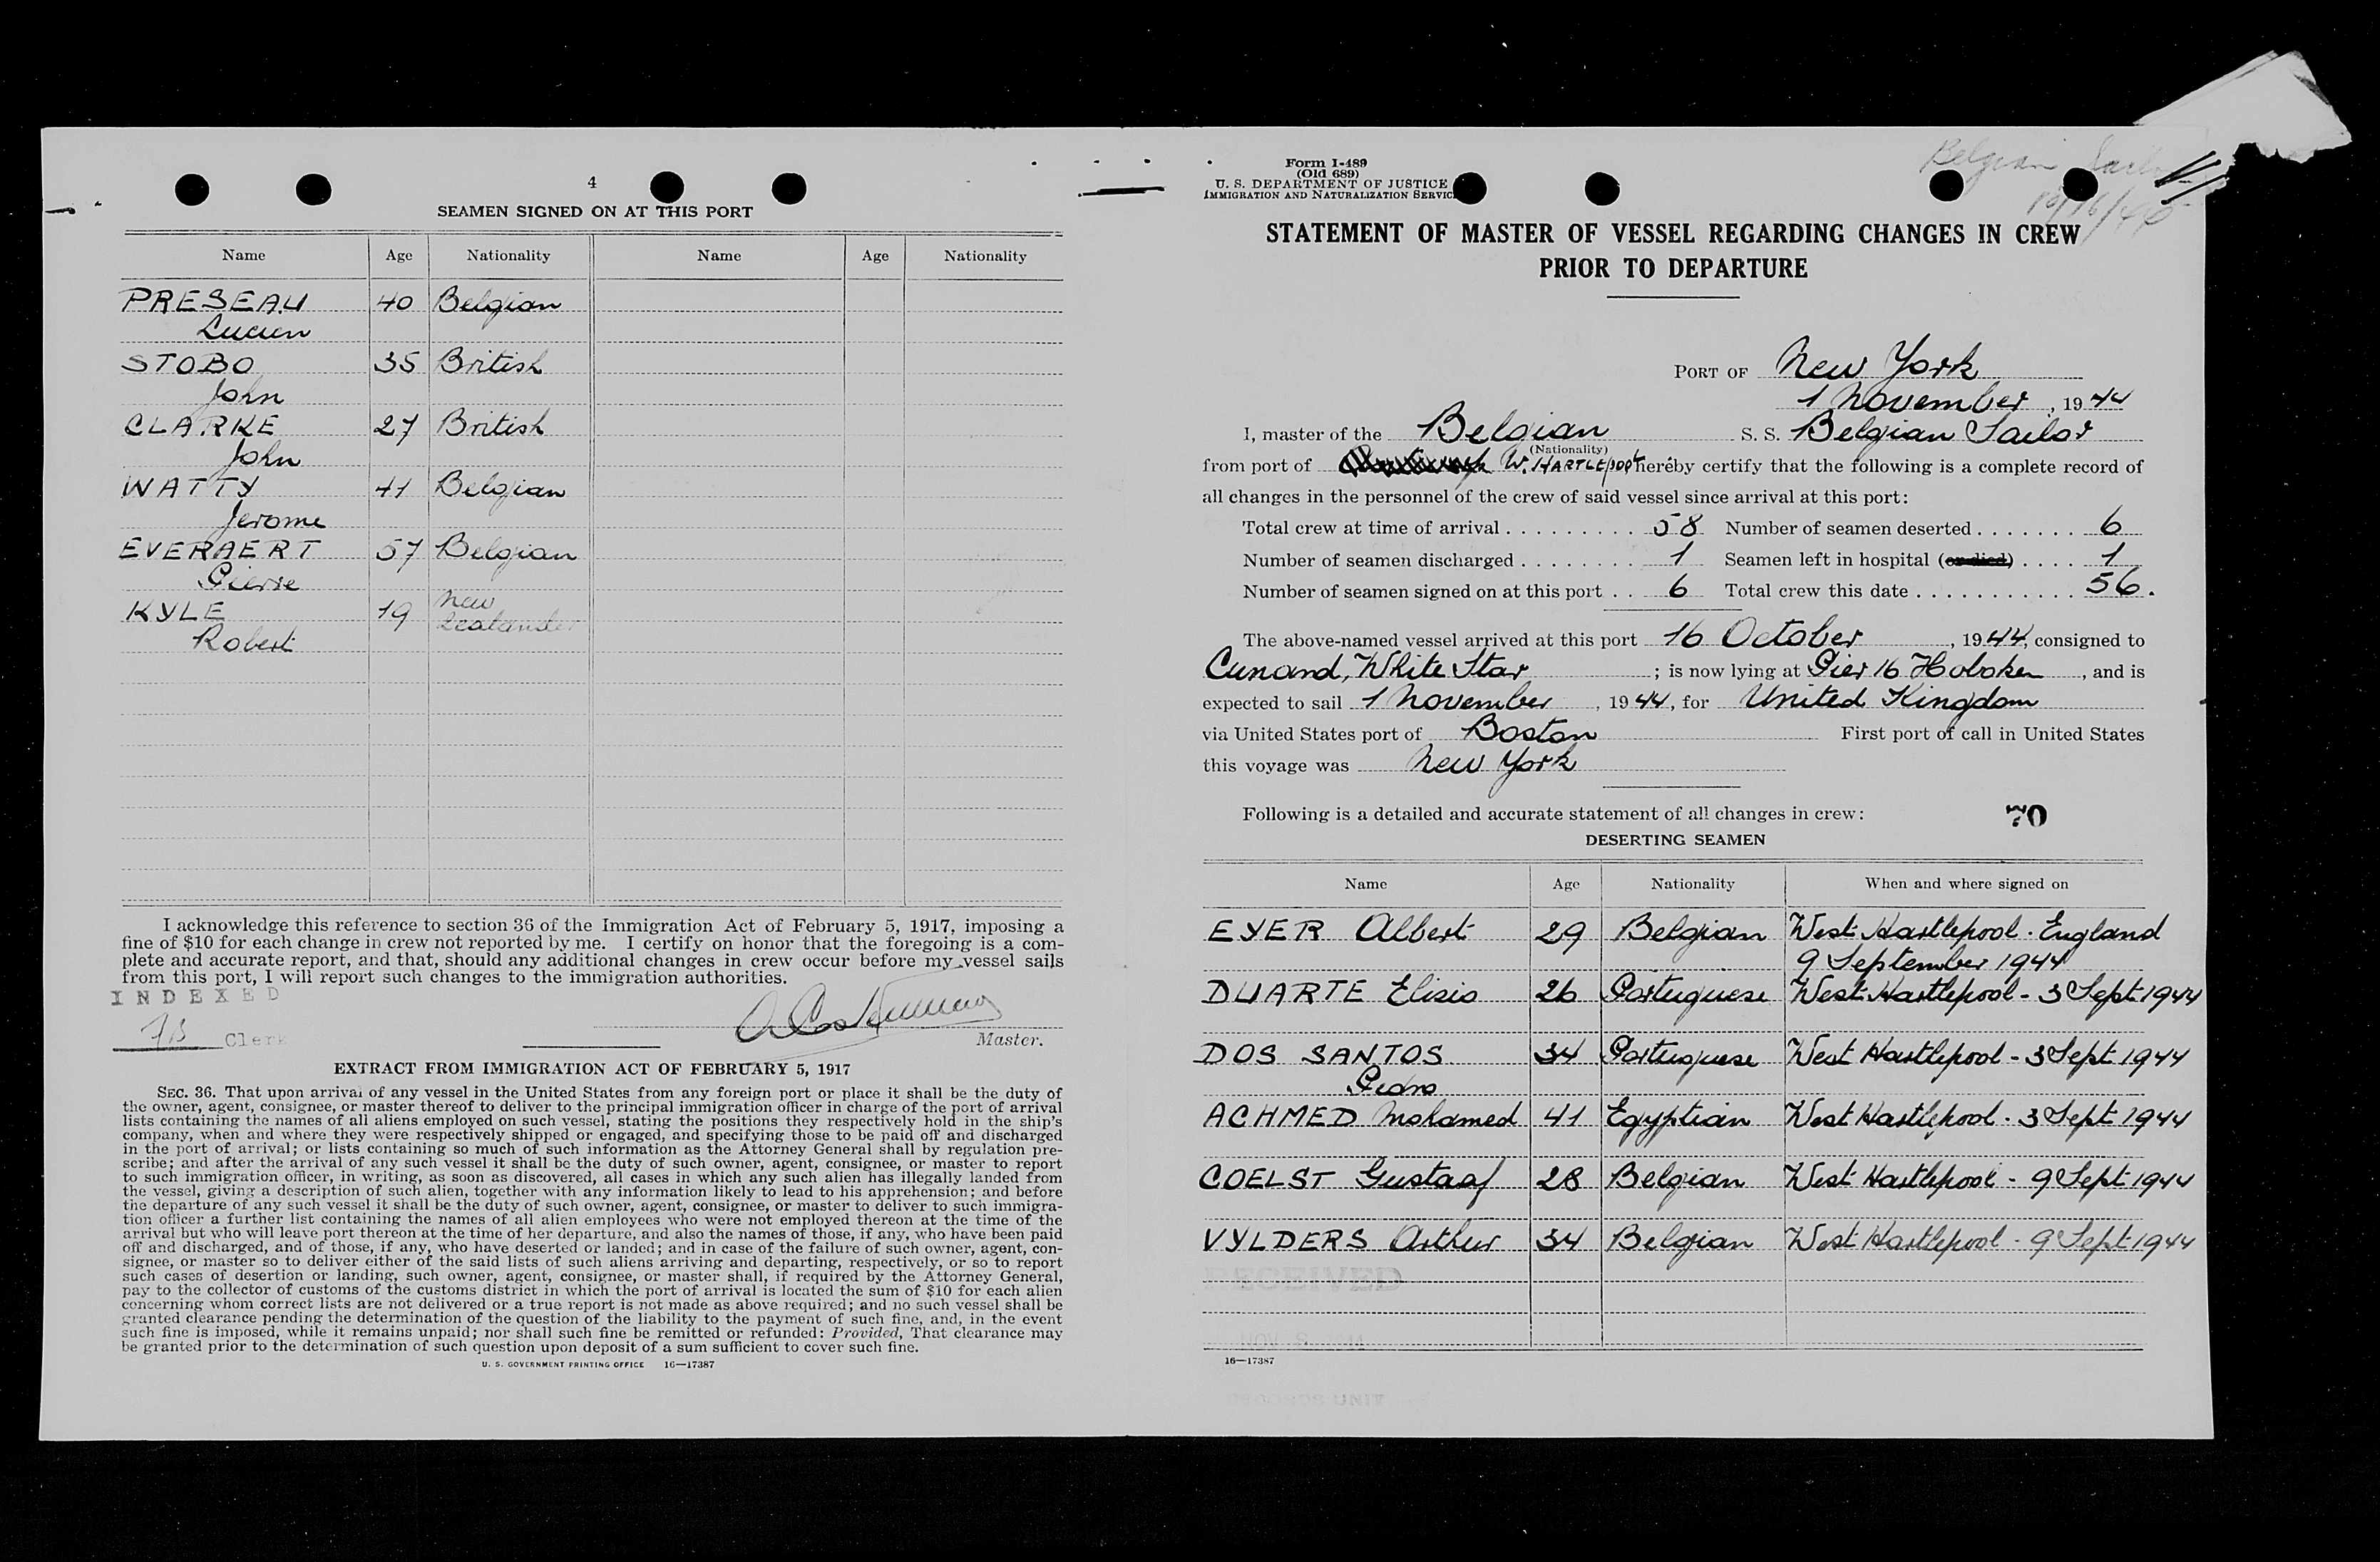 4
SEAMEN SIGNED ON AT THIS PORT
Name Age Nationality Name Age Nationality
PRESEAU 40 Belgian
Lucien
STOBO 35 British
John
CLARKE 27 British
John
WATTY 41 Belgian
Jerome
EVERAERT 57 Belgian
Pierre
KYLE 19 New Zealander
Robert
I acknowledge this reference to section 36 of the Immigration Act of February 5, 1917, imposing a
fine of $10 for each change in crew not reported by me. I certify on honor that the foregoing is a com-
plete and accurate report, and that, should any additional changes in crew occur before my vessel sails
from this port, I will report such changes to the immigration authorities.
INDEXED
Clerk
Master.
EXTRACT FROM IMMIGRATION ACT OF FEBRUARY 5, 1917
SEC. 36. That upon arrival of any vessel in the United States from any foreign port or place it shall be the duty of
the owner, agent, consignee, or master thereof to deliver to the principal immigration officer in charge of the port of arrival
lists containing the names of all aliens employed on such vessel, stating the positions they respectively hold in the ship's
company, when and where they were respectively shipped or engaged, and specifying those to be paid off and discharged
in the port of arrival; or lists containing so much of such information as the Attorney General shall by regulation pre-
scribe; and after the arrival of any such vessel it shall be the duty of such owner, agent, consignee, or master to report
to such immigration officer, in writing, as soon as discovered, all cases in which any such alien has illegally landed from
the vessel, giving a description of such alien, together with any information likely to lead to his apprehension; and before
the departure of any such vessel it shall be the duty of such owner, agent, consignee, or master to deliver to such immigra-
tion officer a further list containing the names of all alien employees who were not employed thereon at the time of the
arrival but who will leave port thereon at the time of her departure, and also the names of those, if any, who have been paid
off and discharged, and of those, if any, who have deserted or landed; and in case of the failure of such owner, agent, con-
signee, or master so to deliver either of the said lists of such aliens arriving and departing, respectively, or so to report
such cases of desertion or landing, such owner, agent, consignee, or master shall, if required by the Attorney General,
pay to the collector of customs of the customs district in which the port of arrival is located the sum of $10 for each alien
concerning whom correct lists are not delivered or a true report is not made as above required; and no such vessel shall be
granted clearance pending the determination of the question of the liability to the payment of such fine, and, in the event
such fine is imposed, while it remains unpaid; nor shall such fine be remitted or refunded: Provided, That clearance may
be granted prior to the determination of such question upon deposit of a sum sufficient to cover such fine.
U. S. GOVERNMENT PRINTING OFFICE 16—17387
Form I-489
(Old 689)
U. S. DEPARTMENT OF JUSTICE
IMMIGRATION AND NATURALIZATION SERVICE
Belgian Sailor
STATEMENT OF MASTER OF VESSEL REGARDING CHANGES IN CREW
PRIOR TO DEPARTURE
PORT OF New York
1 November, 1944
I, master of the Belgian S. S. Belgian Sailor
(Nationality)
from port of W. HARTLEPOOL hereby certify that the following is a complete record of
all changes in the personnel of the crew of said vessel since arrival at this port:
Total crew at time of arrival 58 Number of seamen deserted 6
Number of seamen discharged 1 Seamen left in hospital (or died) 1
Number of seamen signed on at this port 6 Total crew this date 56.
The above-named vessel arrived at this port 16 October, 1944, consigned to
Cunard, White Star; is now lying at Pier 16 Hoboken, and is
expected to sail 1 November, 1944, for United Kingdom
via United States port of Boston First port of call in United States
this voyage was New York
Following is a detailed and accurate statement of all changes in crew: 70
DESERTING SEAMEN
Name Age Nationality When and where signed on
EYER Albert 29 Belgian West Hartlepool · England
9 September 1944
DUARTE Elisio 26 Portuguese West Hartlepool - 3 Sept 1944
DOS SANTOS 34 Portuguese West Hartlepool - 3 Sept 1944
Pedro
ACHMED Mohamed 41 Egyptian West Hartlepool - 3 Sept 1944
COELST Gustaaf 28 Belgian West Hartlepool - 9 Sept 1944
VYLDERS Arthur 34 Belgian West Hartlepool - 9 Sept 1944
RECEIVED
16—17387